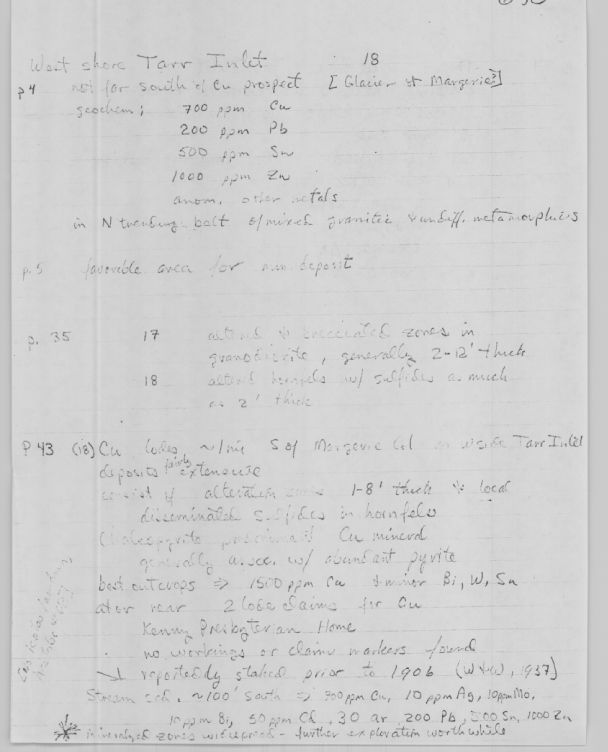 West shore Tarr Inlet 18
p4 not far south of Cu prospect [Glacier at Margerie?]
geochem; 700 ppm Cu
200 ppm Pb
500 ppm Sn
1000 ppm Zn
anom. other metals
in N trending belt of mixed granitic & undiff. metamorphics
p. 5 favorable area for min deposit
p. 35 17 altered & brecciated zones in
granodiorite, generally 2-12' thick
18 altered hornfels w/ sulfides as much
as 2' thick
P 43 (18) Cu lodes ~1 mi S of Margerie Gl on w side Tarr Inlet
deposits fairly extensive
consist of alteration zones 1-8' thick & local
disseminated sulfides in hornfels
Chalcopyrite predominant Cu mineral
generally assoc. w/ abundant pyrite
best outcrops => 1500 ppm Cu & minor Bi, W, Sn
at or near 2 lode claims for Cu
Kenny Presbyterian Home
no workings or claim markers found
reportedly staked prior to 1906 (W&W, 1937)
Stream sed. ~100' south => 700 ppm Cu, 10 ppm Ag, 10ppm Mo,
10 ppm Bi, 50 ppm Cd, 30 ar, 200 Pb, 500 Sn, 1000 Zn
* mineralized zones widespread - further exploration worthwhile